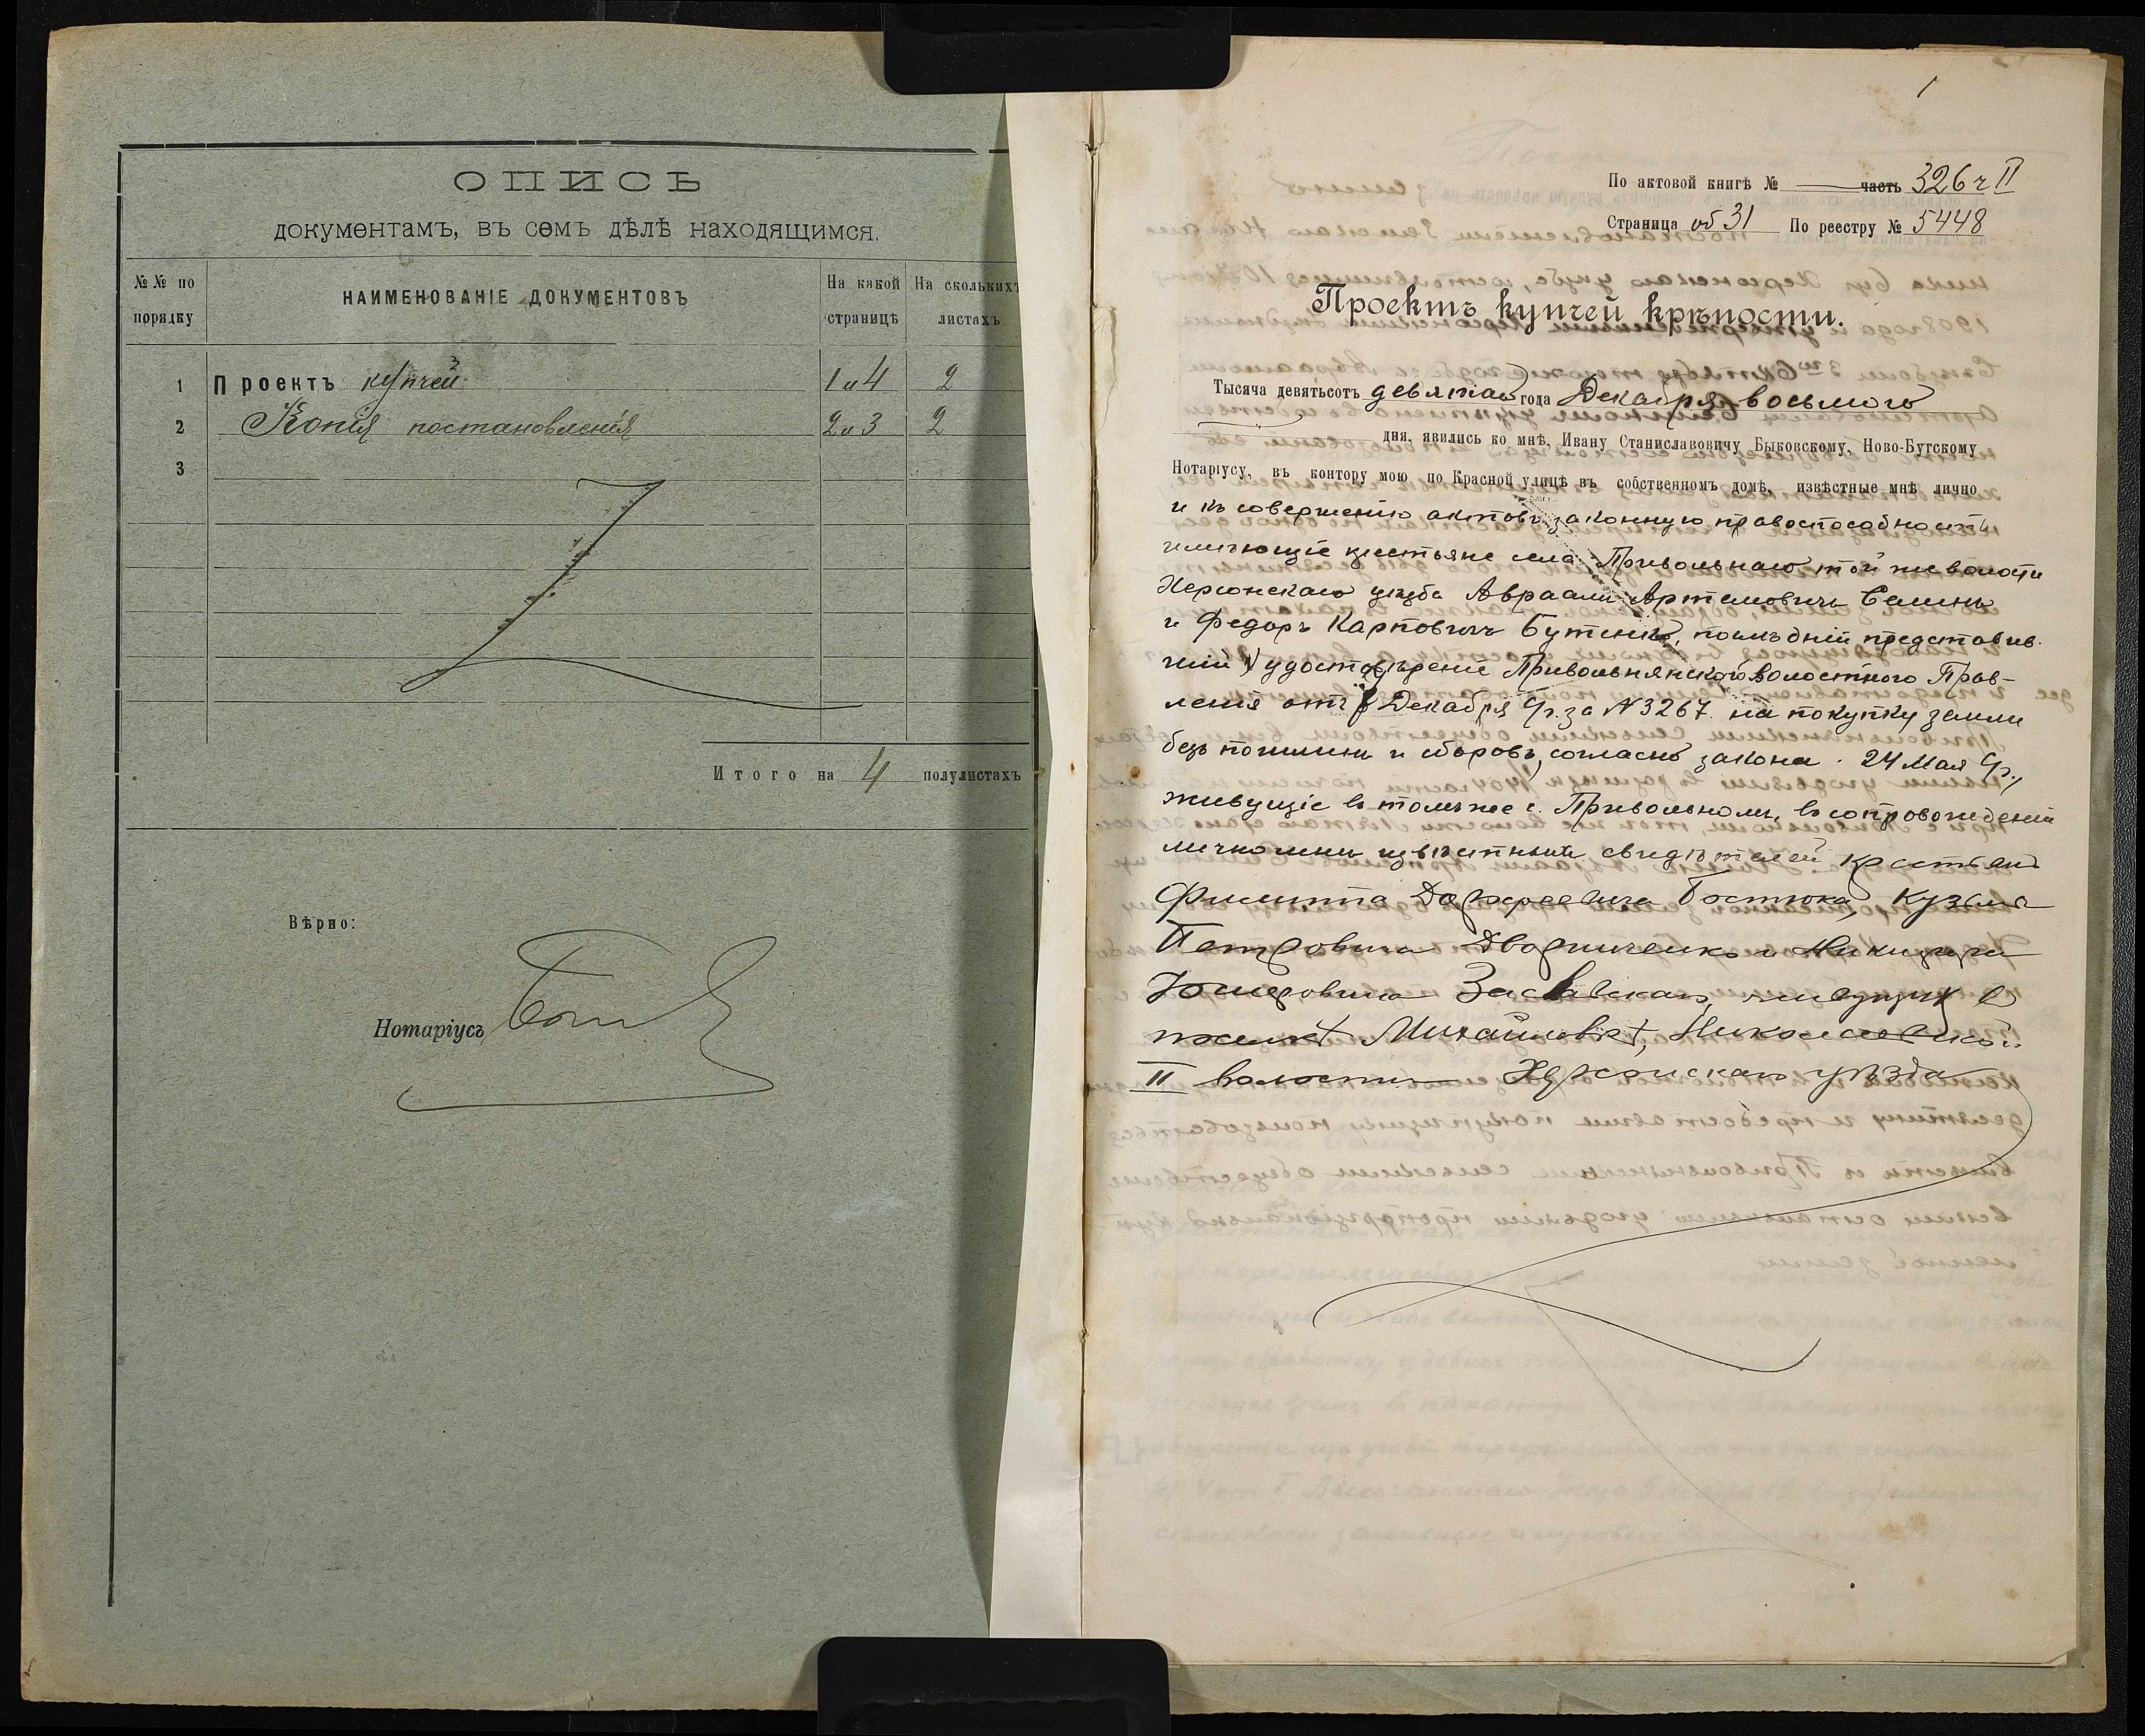 ОПИСЬ
документамъ, въ семъ дѣлѣ находящимся.
№№ по порядку
НАИМЕНОВАНІЕ ДОКУМЕНТОВЪ
На какой страницѣ
На сколькихъ листахъ
1 Проектъ купчей 1 и 4 2
2 Копія постановленія 2 и 3 2
3
Итого на 4 полулистахъ
Вѣрно:
Нотаріусъ
1
По актовой книгѣ № часть 326 ч II
Страница об 31 По реестру № 5448
Проектъ купчей крѣпости.
Тысяча девятьсотъ девятаго года Декабря восьмого
дня, явились ко мнѣ, Ивану Станиславовичу Быковскому, Ново-Бугскому
Нотаріусу, въ контору мою по Красной улицѣ въ собственномъ домѣ, извѣстные мнѣ лично
и къ совершенію актовъ законную правоспособность
имѣющіе крестьяне села Привольнаго той же волости
Херсонскаго уѣзда Авраамъ Артемовичъ Семинъ
и Федоръ Карповичъ Бутенко, послѣдній представив-
шій удостовѣреніе Привольнянскаго волостного Прав-
ленія отъ Декабря 9 г. за № 3267 на покупку земли
безъ пошлинъ и сборовъ, согласно закона 24 Мая 9 г.,
живущіе въ томъ же с. Привольномъ, въ сопровожденіи
лично мнѣ извѣстныхъ свидѣтелей крестьянъ
Филиппа Костюка, Кузьмы
Петровича Дворниченко и Никифора
Заславскаго, живущихъ въ
поселкѣ Михайловкѣ, Николаевской
II волости Херсонскаго уѣзда